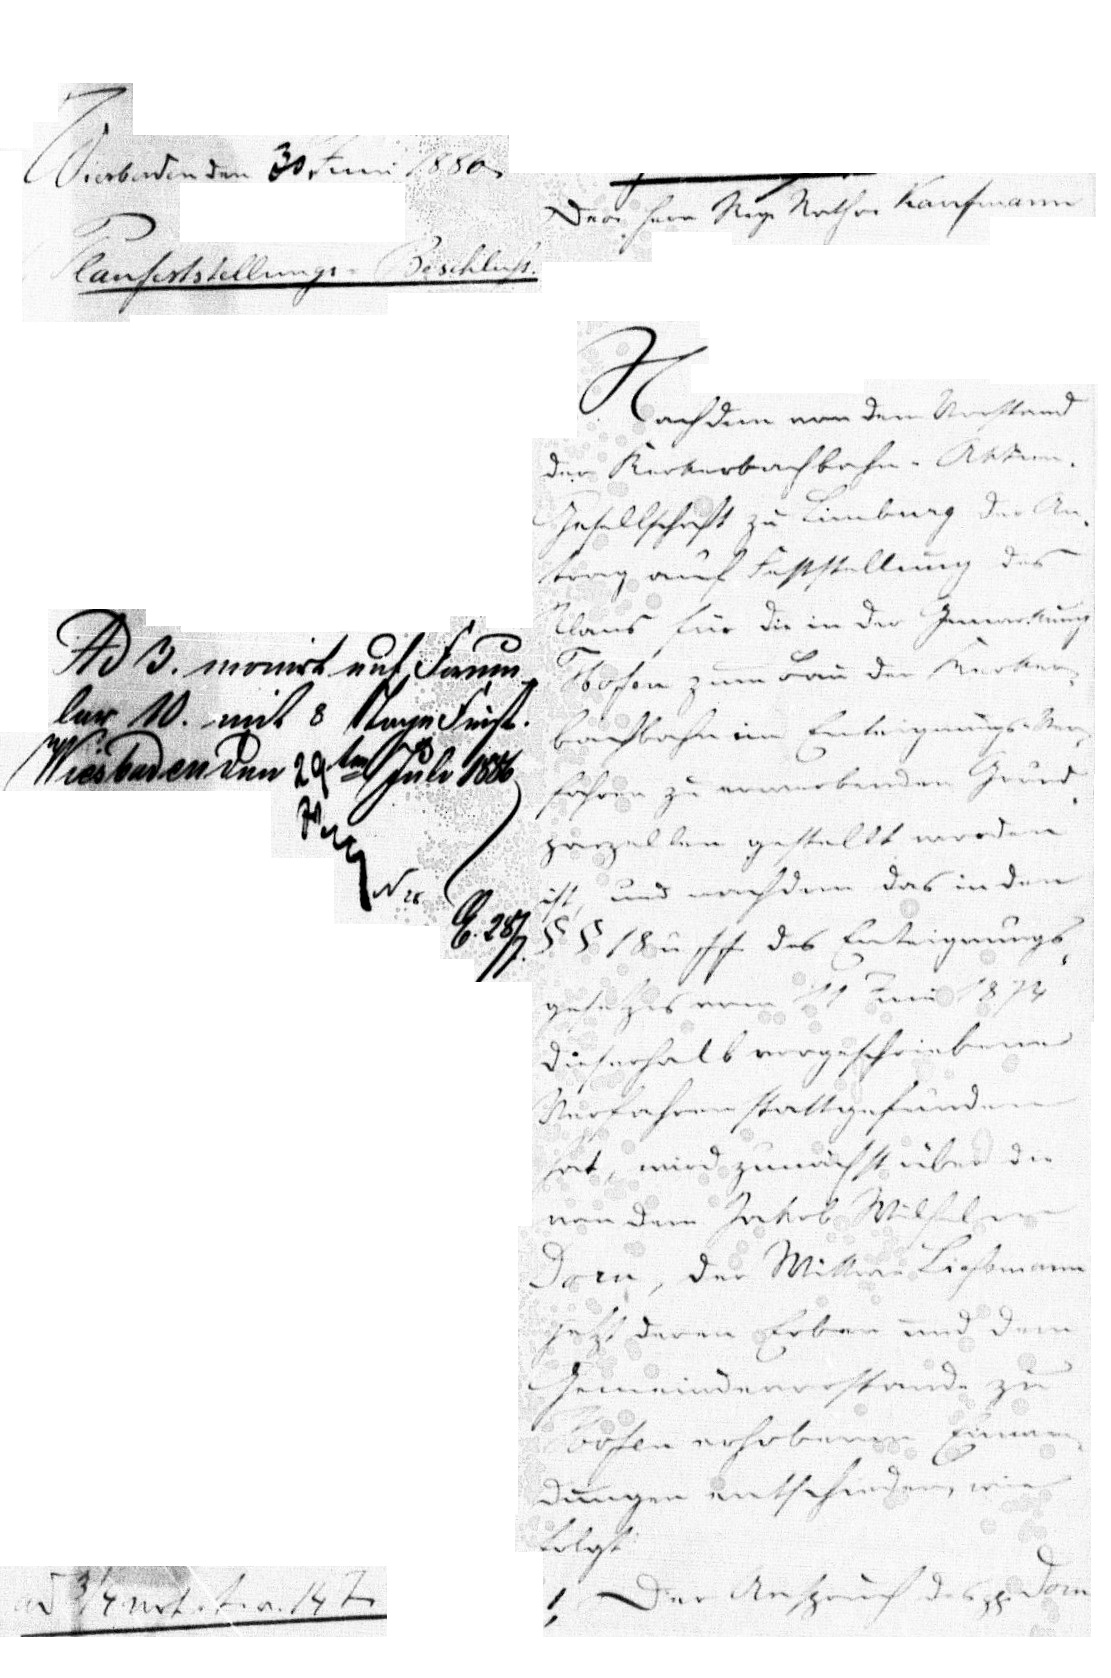 Wiesbaden den 30. Juni 1886
Planfeststellungs-Beschluß.
Herr Reg. Rath Kaufmann
Nachdem von dem Vorstand
der Kerkerbachbahn-Aktien-
Gesellschaft zu Limburg der An-
trag auf Feststellung des
Plans für die in der Gemarkung
zum Bau der Kerker-
bachbahn im Enteignungs-Ver-
fahren zu erwerbenden Grund-
parzellen gestellt worden
ist, und nachdem das in den
§§ 18 u ff des Enteignungs-
gesetzes vom 11 Juni 1874
dieserhalb vorgeschriebene
Verfahren stattgefunden
hat, wird zunächst über die
von dem Jakob Wilhelm
Dorn, der Wittwe
jetzt deren Erben und dem
Gemeindevorstande zu
erhobenen Einwen-
dungen entschieden, wie
folgt
1, Der Anspruch des pp. Dorn
Ad 3. monirt auf Formu-
lar 10. mit 8 Tage Frist.
Wiesbaden den 29ten Juli 1886